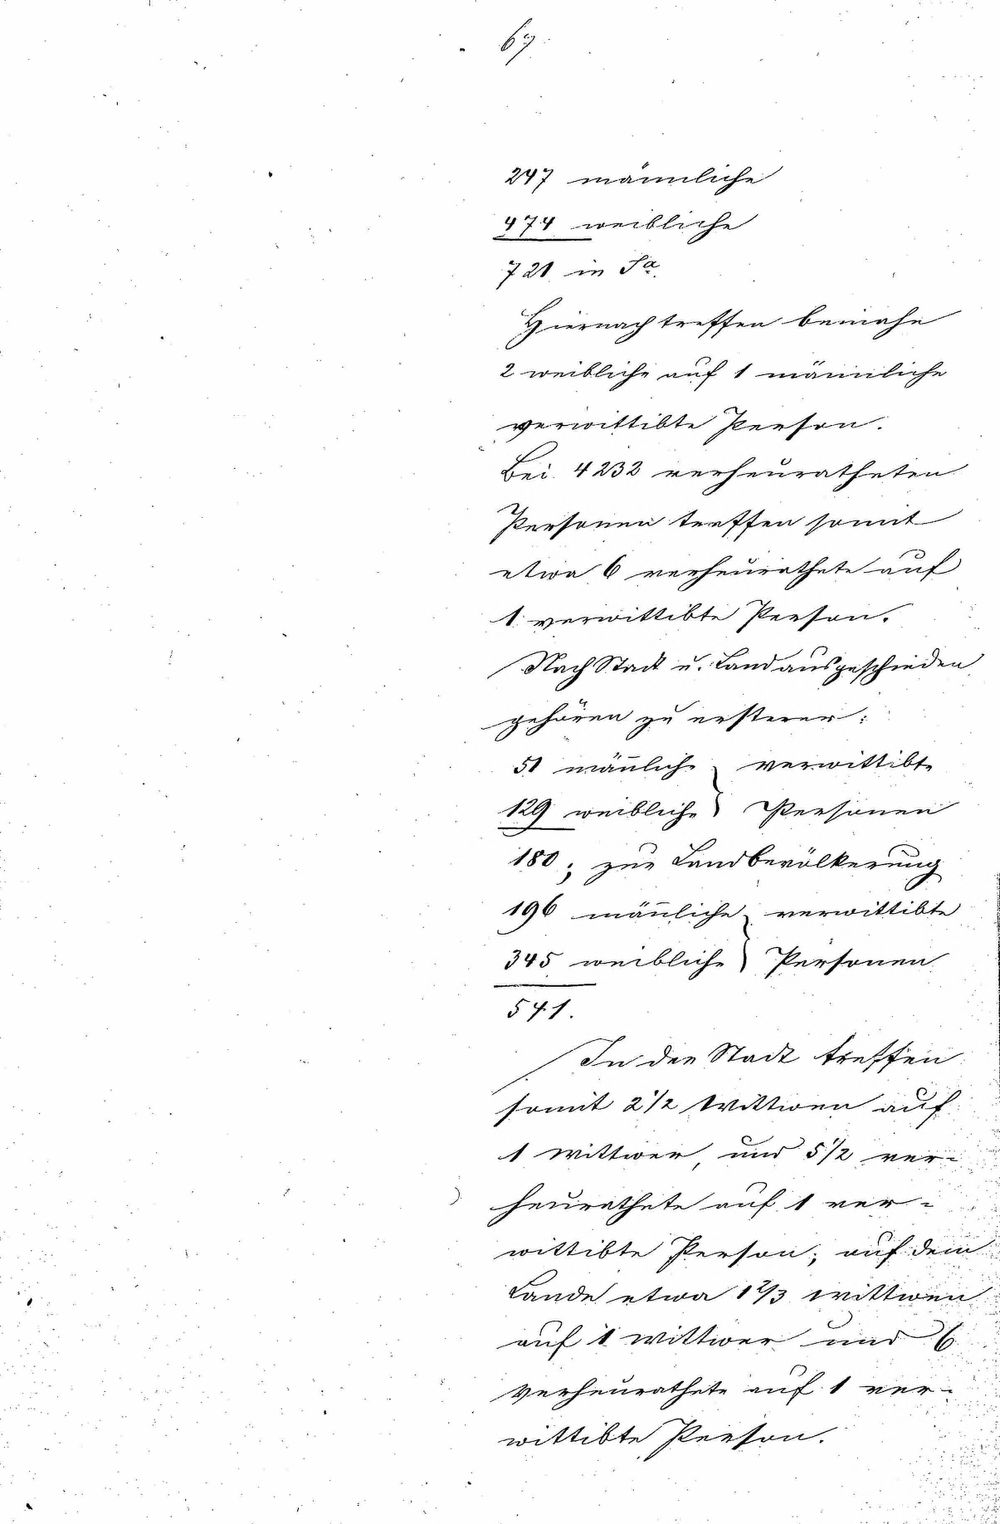 67
247 männliche
474 weibliche
721 in Sa.
Hiernach treffen beinahe
2 weibliche auf 1 männliche
verwittibte Person.
Bei 4232 verheuratheten
Personen treffen somit
etwa 6 verheurathete auf
1 verwittibte Person.
Nach Stadt u. Land ausgeschieden
gehören zu ersterer:
51 männliche } verwittibte
129 weibliche } Personen
180; zur Landbevölkerung
196 männliche } verwittibte
345 weibliche } Personen
541.
In der Stadt treffen
somit 2 1/2 Wittwen auf
1 Wittwer, und 5 1/2 ver-
heurathete auf 1 ver-
wittibte Person; auf dem
Lande etwa 1 2/3 Wittwen
auf 1 Wittwer und 6
verheurathete auf 1 ver-
wittibte Person.